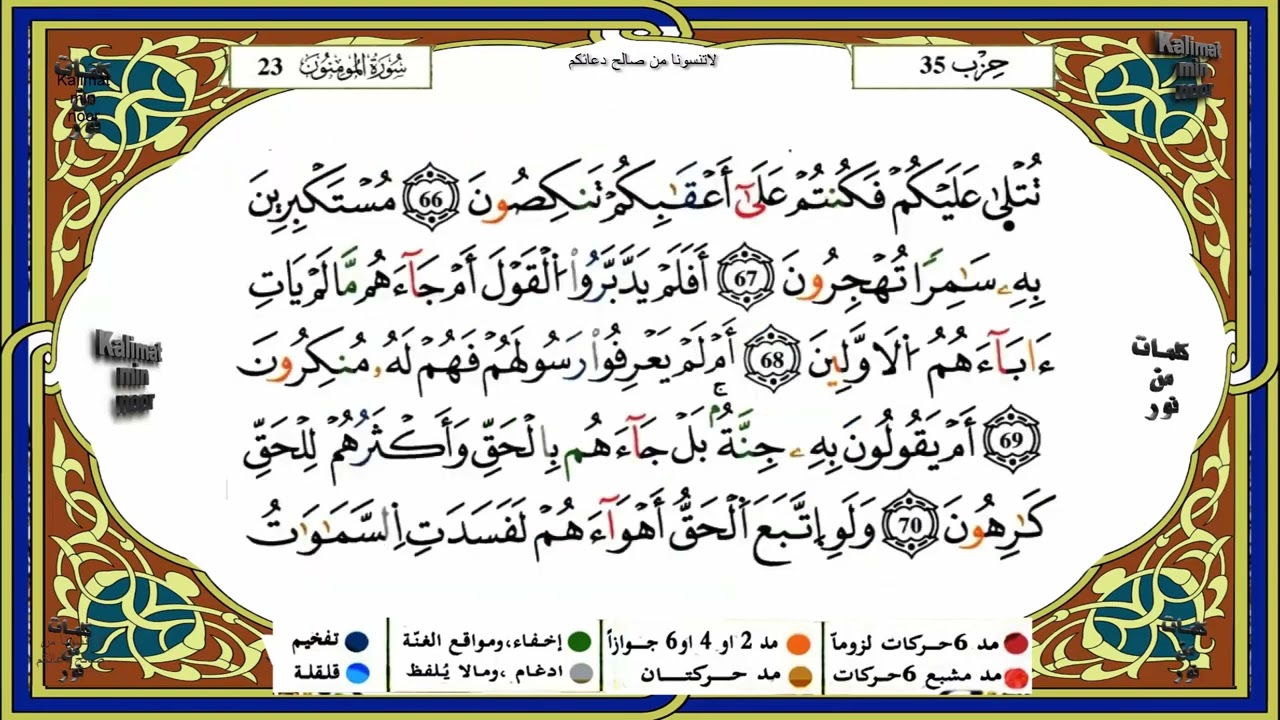 حِزْب 35
لاتنسونا من صالح دعائكم
سُورَةُ الْمُومِنُونَ 23
Kalimat
min
noor
Kalimat
min
noor
تُتْلَىٰ عَلَيْكُمْ فَكُنتُمْ عَلَىٰٓ أَعْقَٰبِكُمْ تَنكِصُونَ 66 مُسْتَكْبِرِينَ
بِهِۦ سَٰمِرًا تُهْجِرُونَ 67 أَفَلَمْ يَدَّبَّرُوا۟ الْقَوْلَ أَمْ جَآءَهُم مَّا لَمْ يَاتِ
ءَابَآءَهُمُ الَاوَّلِينَ 68 أَمْ لَمْ يَعْرِفُوا۟ رَسُولَهُمْ فَهُمْ لَهُۥ مُنكِرُونَ
69 أَمْ يَقُولُونَ بِهِۦ جِنَّةُۢ ۚ بَلْ جَآءَهُم بِالْحَقِّ وَأَكْثَرُهُمْ لِلْحَقِّ
كَٰرِهُونَ 70 وَلَوِ اِتَّبَعَ اَلْحَقُّ أَهْوَآءَهُمْ لَفَسَدَتِ اِلسَّمَٰوَٰتُ
Kalimat
min
noor
كلمات
من
نور
مد 6 حركات لزوماً
مد 2 او 4 او 6 جوازاً
إخفاء، ومواقع الغنّة
تفخيم
مد مشبع 6 حركات
مد حركتان
ادغام، ومالا يُلفظ
قلقلة